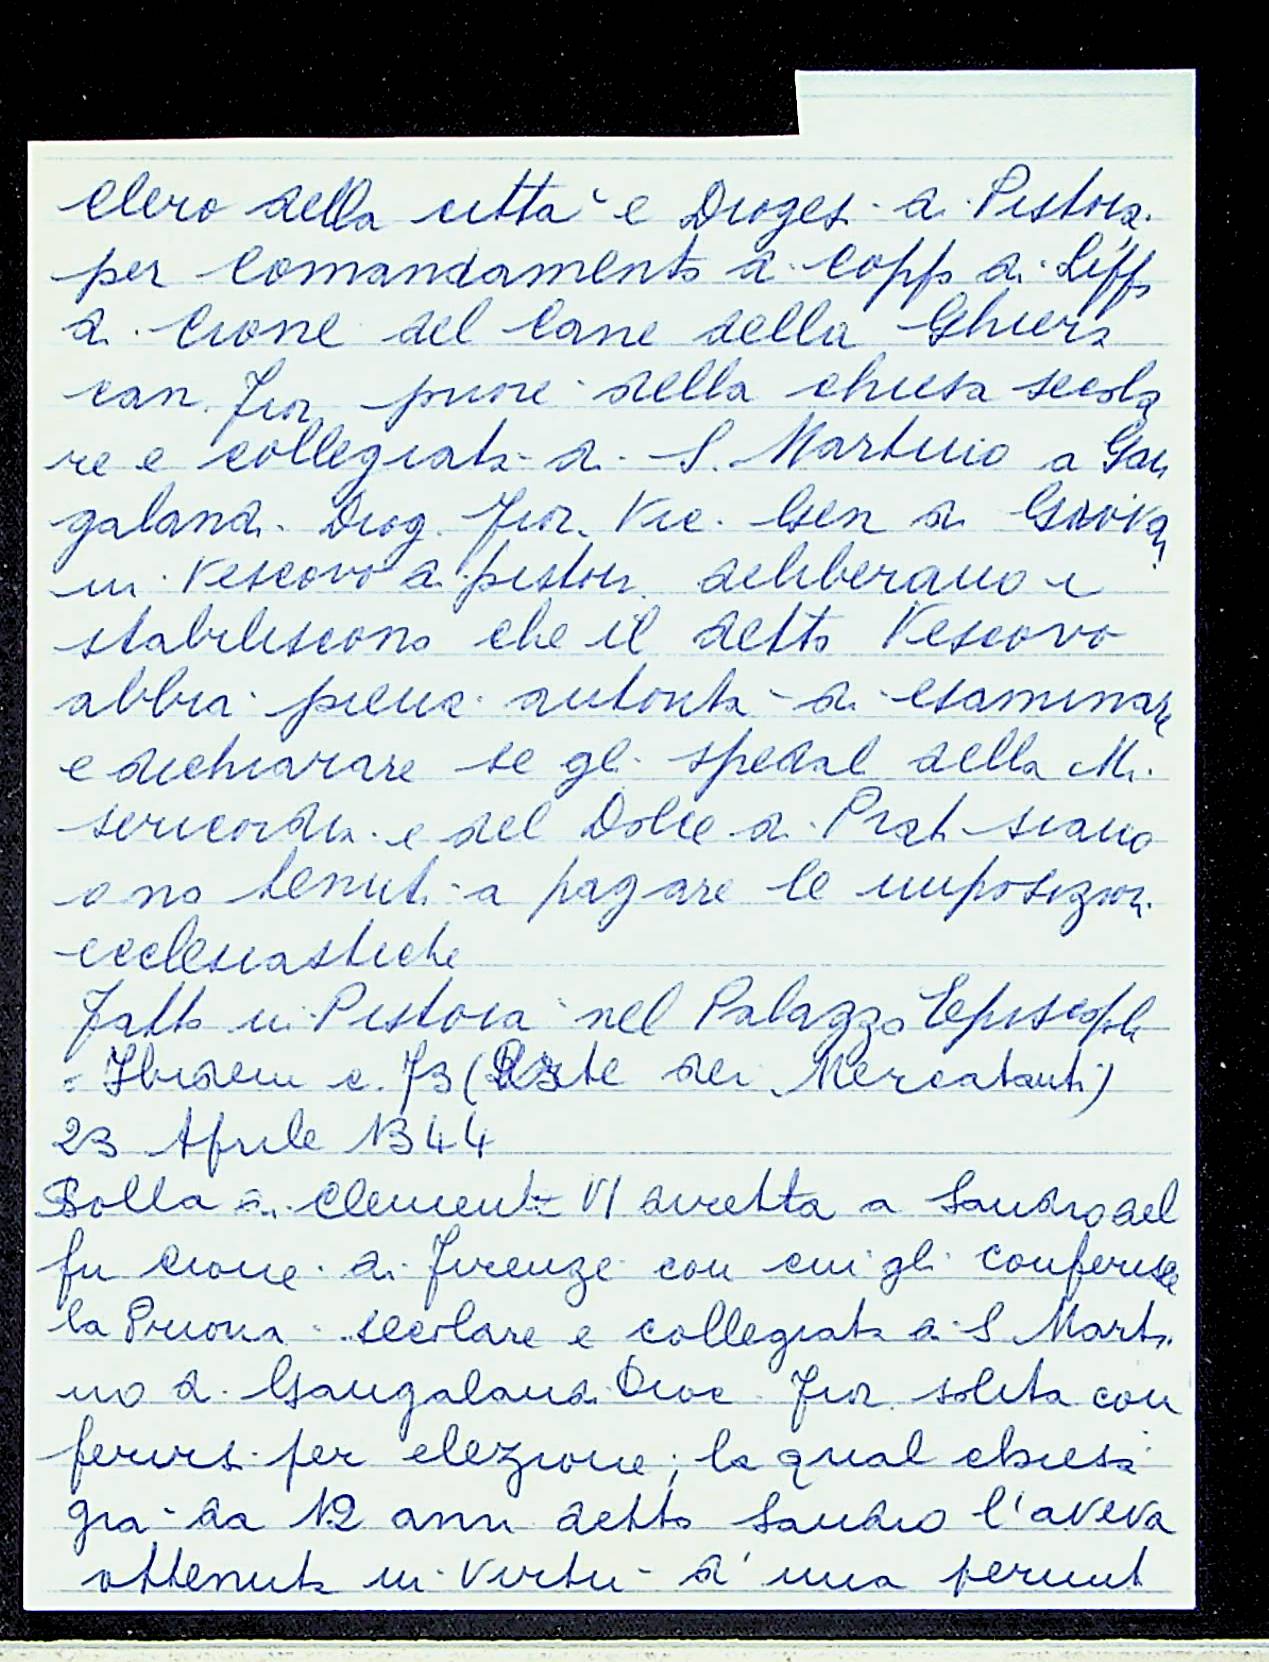 clero della città e Dioges. di Pistoia.
per comandamento di Coppo di Lippo
di Cione del Cane della Gherra
can. Fior. priore della chiesa secola
re e collegiata di S. Martino a Gan
galandi. Diog. Fior. Vic. Gen di Giovan
ni Vescovo di pistoia deliberano e
stabiliscono che il detto Vescovo
abbia piena autorità di esaminare
e dichiarare se gli spedal della Mi
sericordia e del Dolce di Prato siano
o no tenuti a pagare le imposizioni
ecclesiastiche
Fatto in Pistoia nel Palazzo Episcopale
= Ibidem c. 73 (Arte dei Mercatanti)
23 Aprile 1344
Bolla di Clemente VI diretta a Sandro del
fu Cione di Firenze con cui gli conferisce
la Prioria secolare e collegiata di S Marti
no di Gangalandi Dioc Fior. solita con
ferirsi per elezione; la qual chiesa
già da 12 anni detto Sandro l'aveva
ottenuta in virtù d'una permut